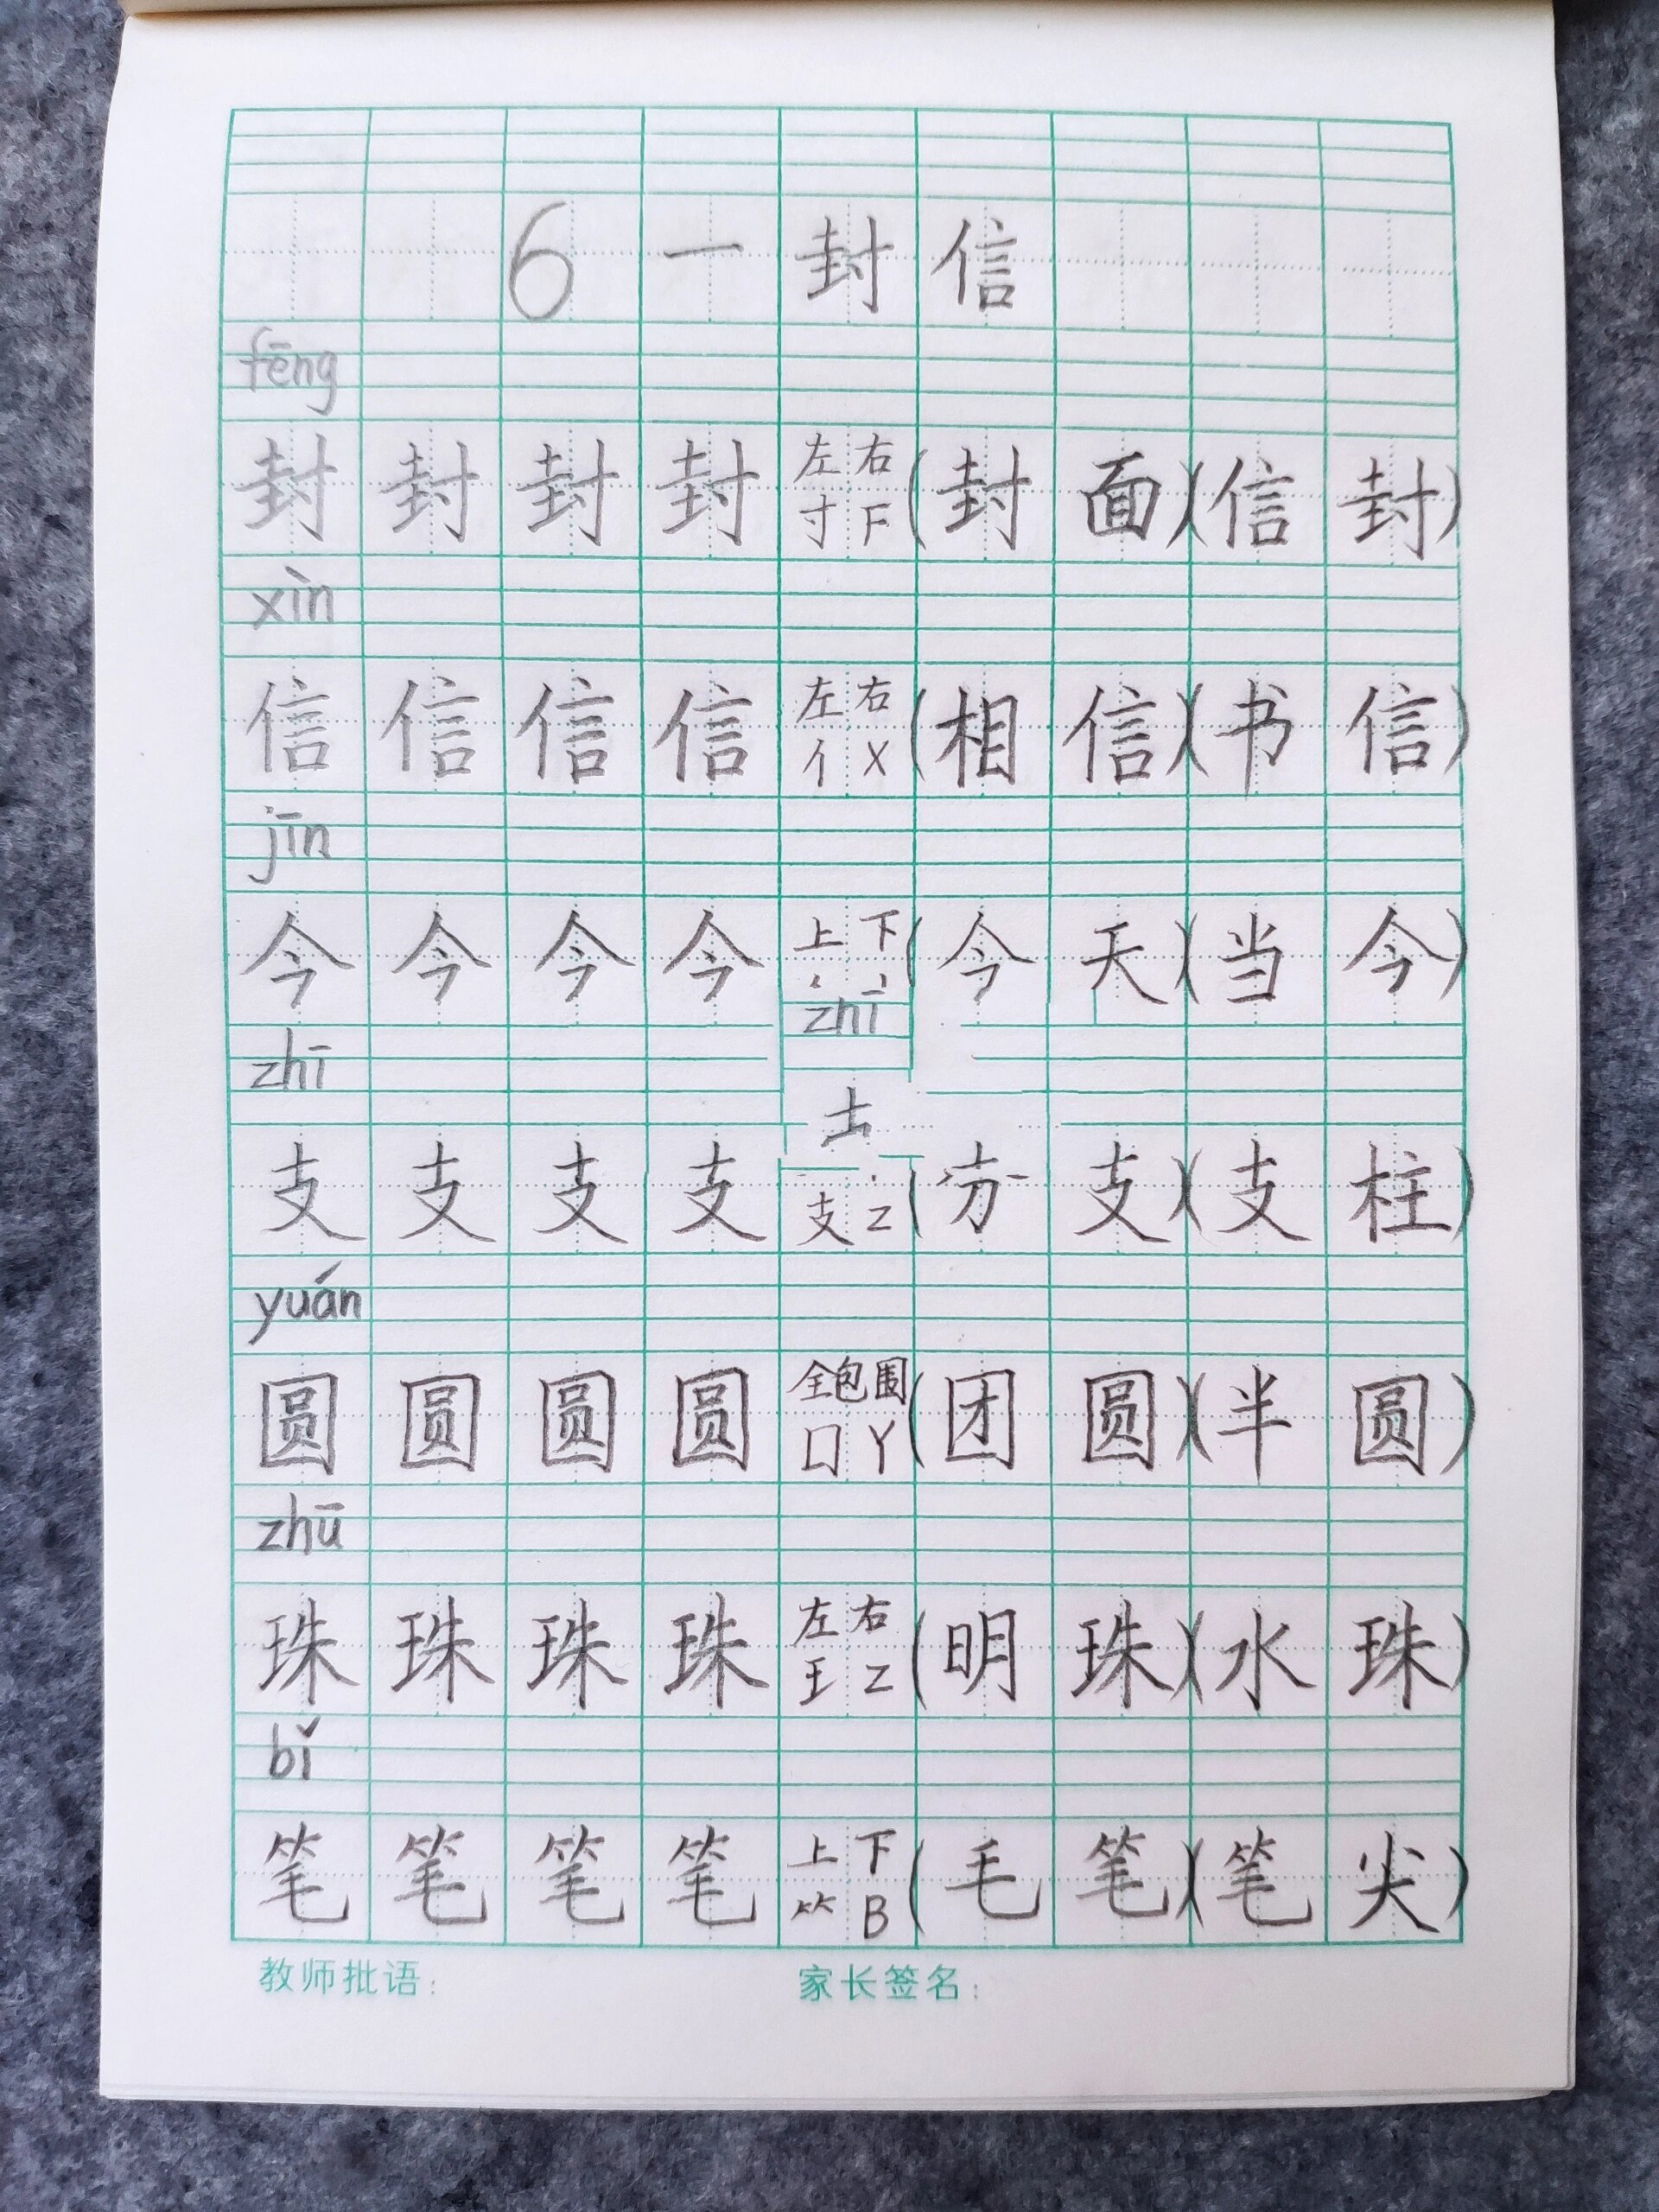 6 一封信
fēng
封 封 封 封 左右 寸 F (封面)(信封)
xìn
信 信 信 信 左右 亻 X (相信)(书信)
jīn
今 今 今 今 上下 (今天)(当今)
zhī
zhī
支 支 支 支 支 Z (分支)(支柱)
yuán
圆 圆 圆 圆 全包围 口 Y (团圆)(半圆)
zhū
珠 珠 珠 珠 左右 王 Z (明珠)(水珠)
bǐ
笔 笔 笔 笔 上下 ⺮ B (毛笔)(笔尖)
教师批语: 家长签名: